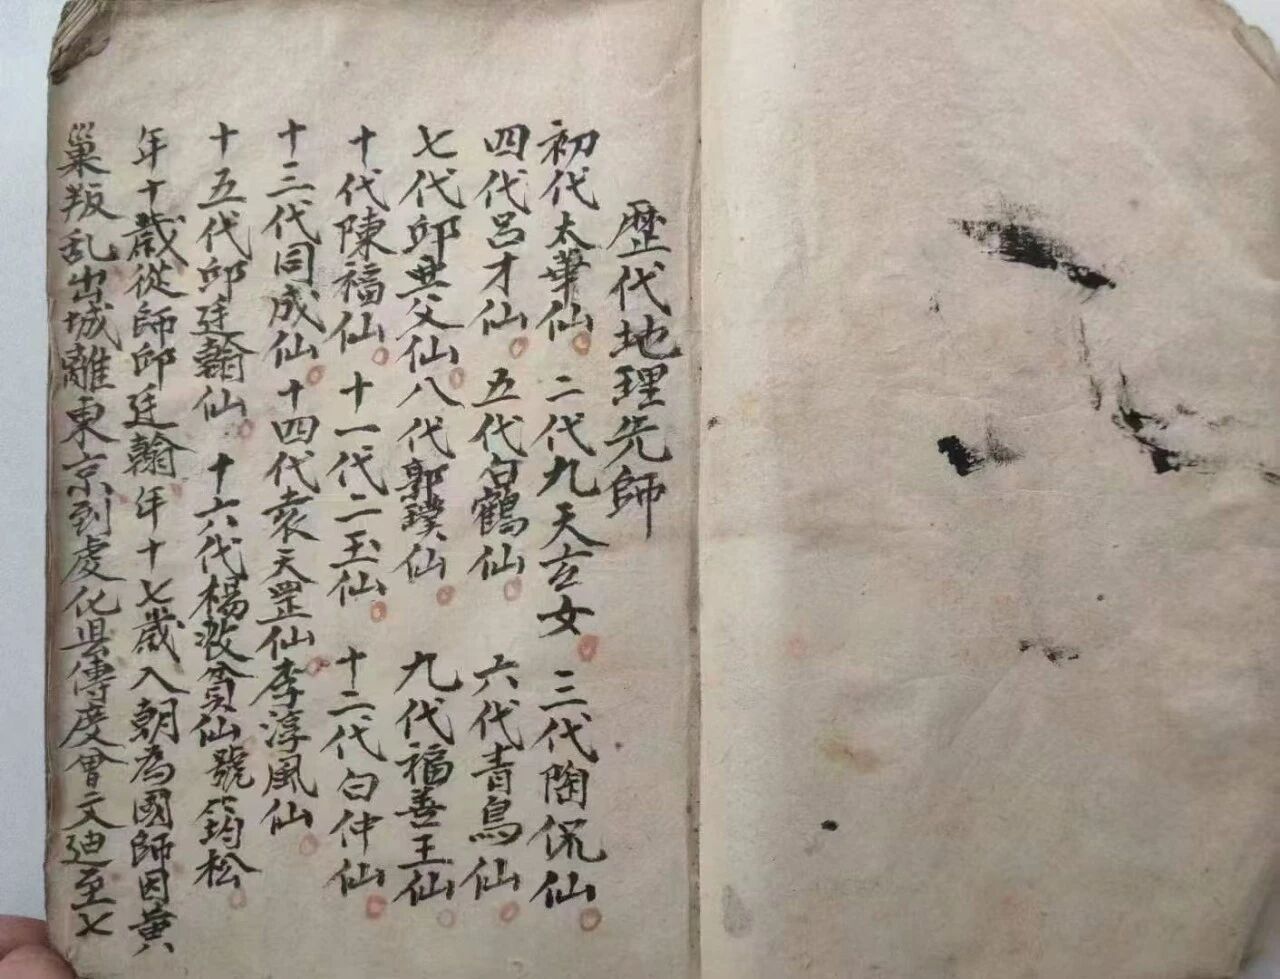 歷代地理先師
初代太華仙 二代九天玄女 三代陶侃仙
四代呂才仙 五代白鶴仙 六代青鳥仙
七代邱 父仙 八代郭璞仙 九代福善王仙
十代陳福仙 十一代二玉仙 十二代白仲仙
十三代同成仙 十四代袁天罡仙李淳風仙
十五代邱廷翰仙 十六代楊救貧仙號筠松
年十歲從師邱廷翰年十七歲入朝為國師因黃
巢叛乱出城離東京到虔化县傳度曾文迪至七